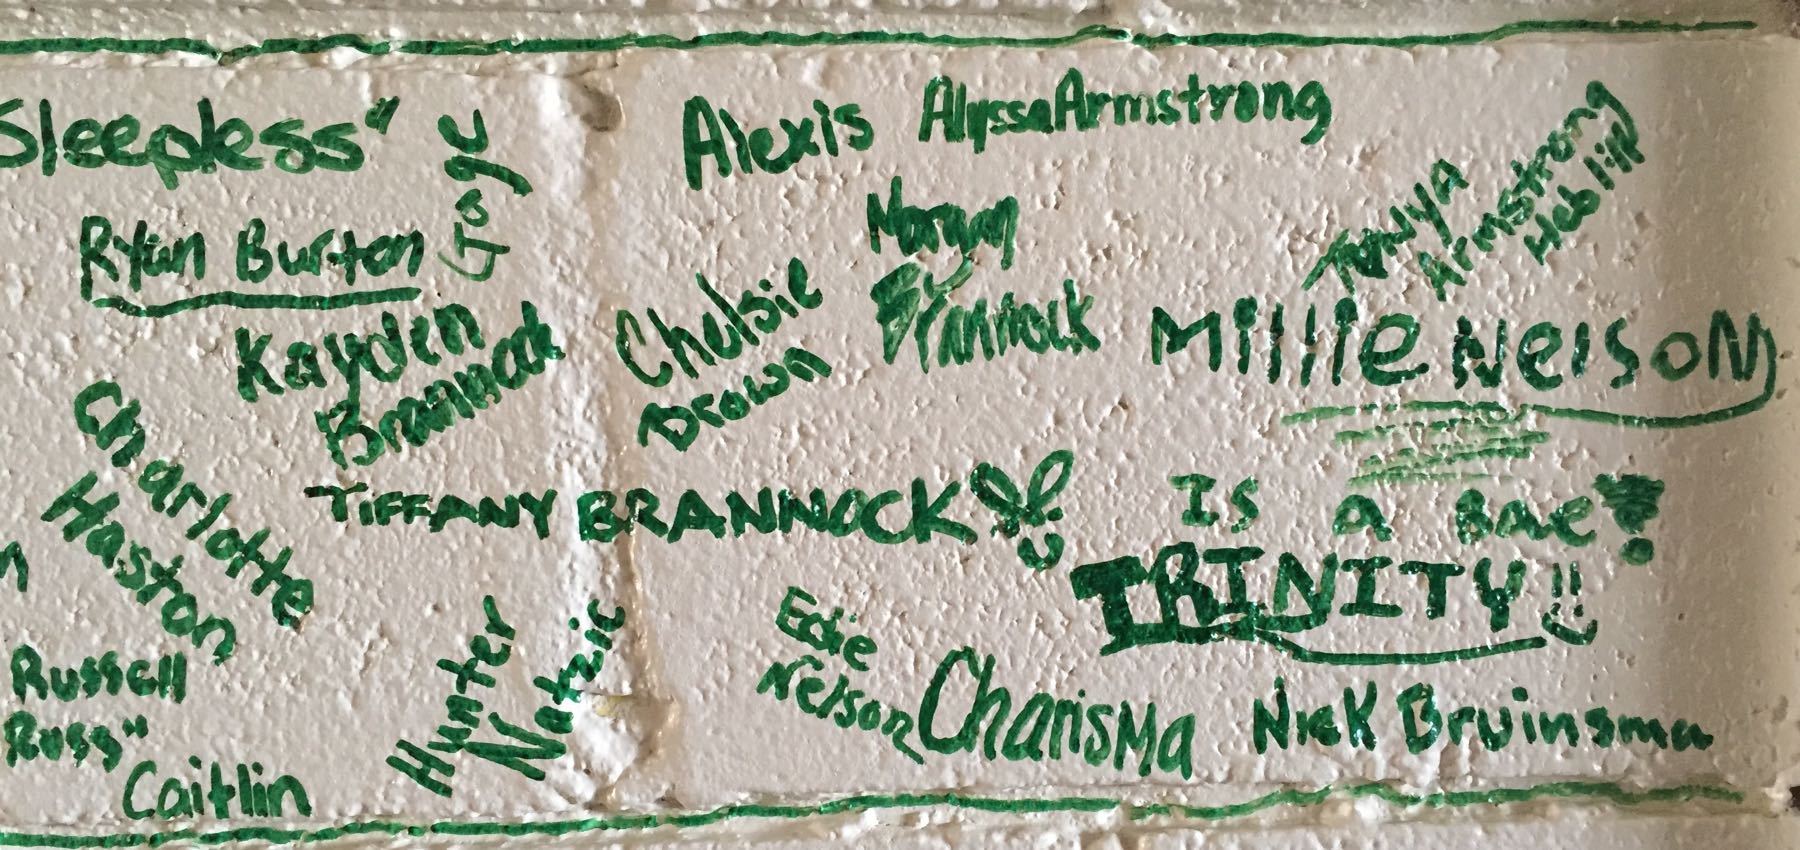 Sleepless"
Gage
Alexis
Alyssa Armstrong
Tanya
Armstrong
Heblin
Ryan Burton
Kayden
Brannock
Chelsie
Drown
Brannock
Millie Nelson
Charlotte
Haston
TiFFANY BRANNOCK
IS A BAE!
TRINITY!!
Russell
Russ"
Caitlin
Hunter
Edie
Nelson
Charisma
Nick Bruinsma